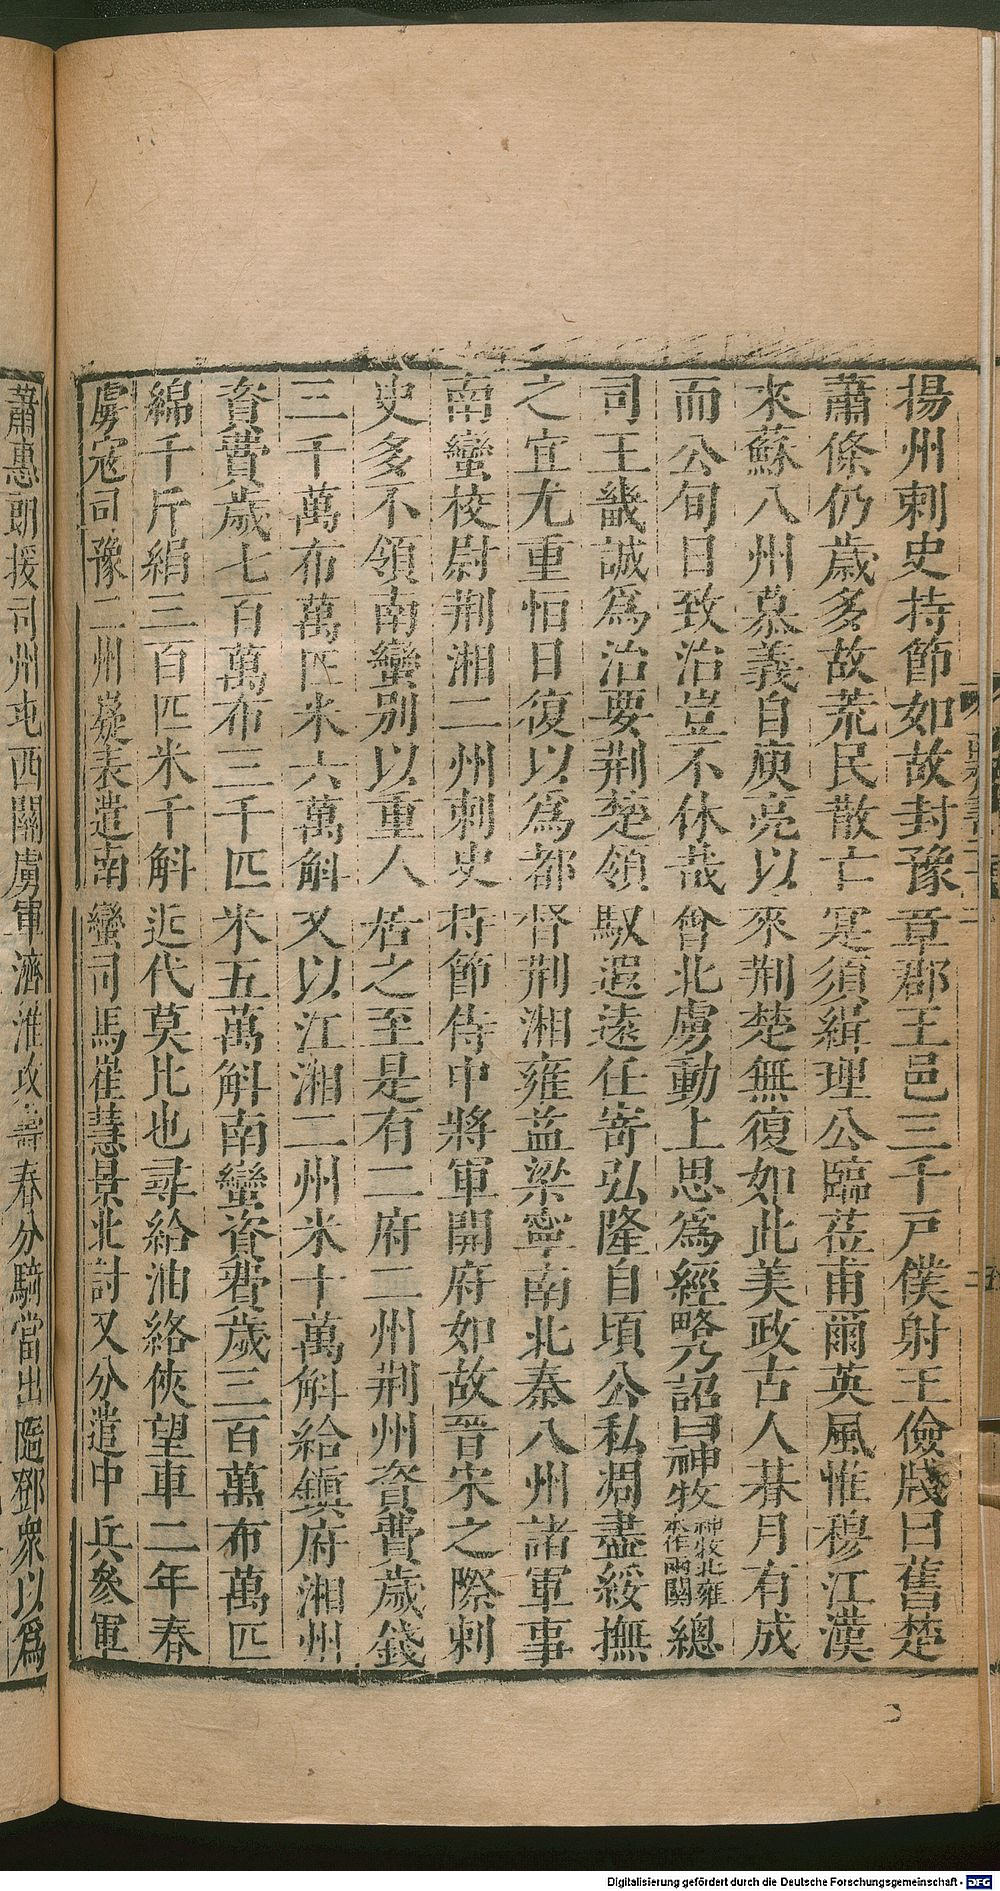 揚州刺史持節如故封豫章郡王邑三千戸僕射王儉牋曰舊楚
蕭條仍歲多故荒民散亡寔須緝理公臨莅甫爾英風惟穆江漢
來蘇八州慕義自庾亮以來荆楚無復如此美政古人朞月有成
而公旬日致治豈不休哉會北虜動上思爲經略乃詔曰神牧神牧北雍本作兩關總
司王畿誠爲治要荆楚領馭遐遠任寄弘隆自頃公私凋盡綏撫
之宜尤重恒日復以爲都督荆湘雍益梁寧南北秦八州諸軍事
南蠻校尉荆湘二州刺史持節侍中將軍開府如故晉宋之際刺
史多不領南蠻別以重人居之至是有二府二州荆州資費歲錢
三千萬布萬匹米六萬斛又以江湘二州米十萬斛給鎭府湘州
資費歲七百萬布三千匹米五萬斛南蠻資費歲三百萬布萬匹
綿千斤絹三百匹米千斛近代莫比也尋給油絡俠望車二年春
虜寇司豫二州嶷表遣南蠻司馬崔慧景北討又分遣中兵參軍
蕭惠朗援司州屯西關虜軍濟淮攻壽春分騎當出隨鄧衆以爲
Digitalisierung gefördert durch die Deutsche Forschungsgemeinschaft - DFG